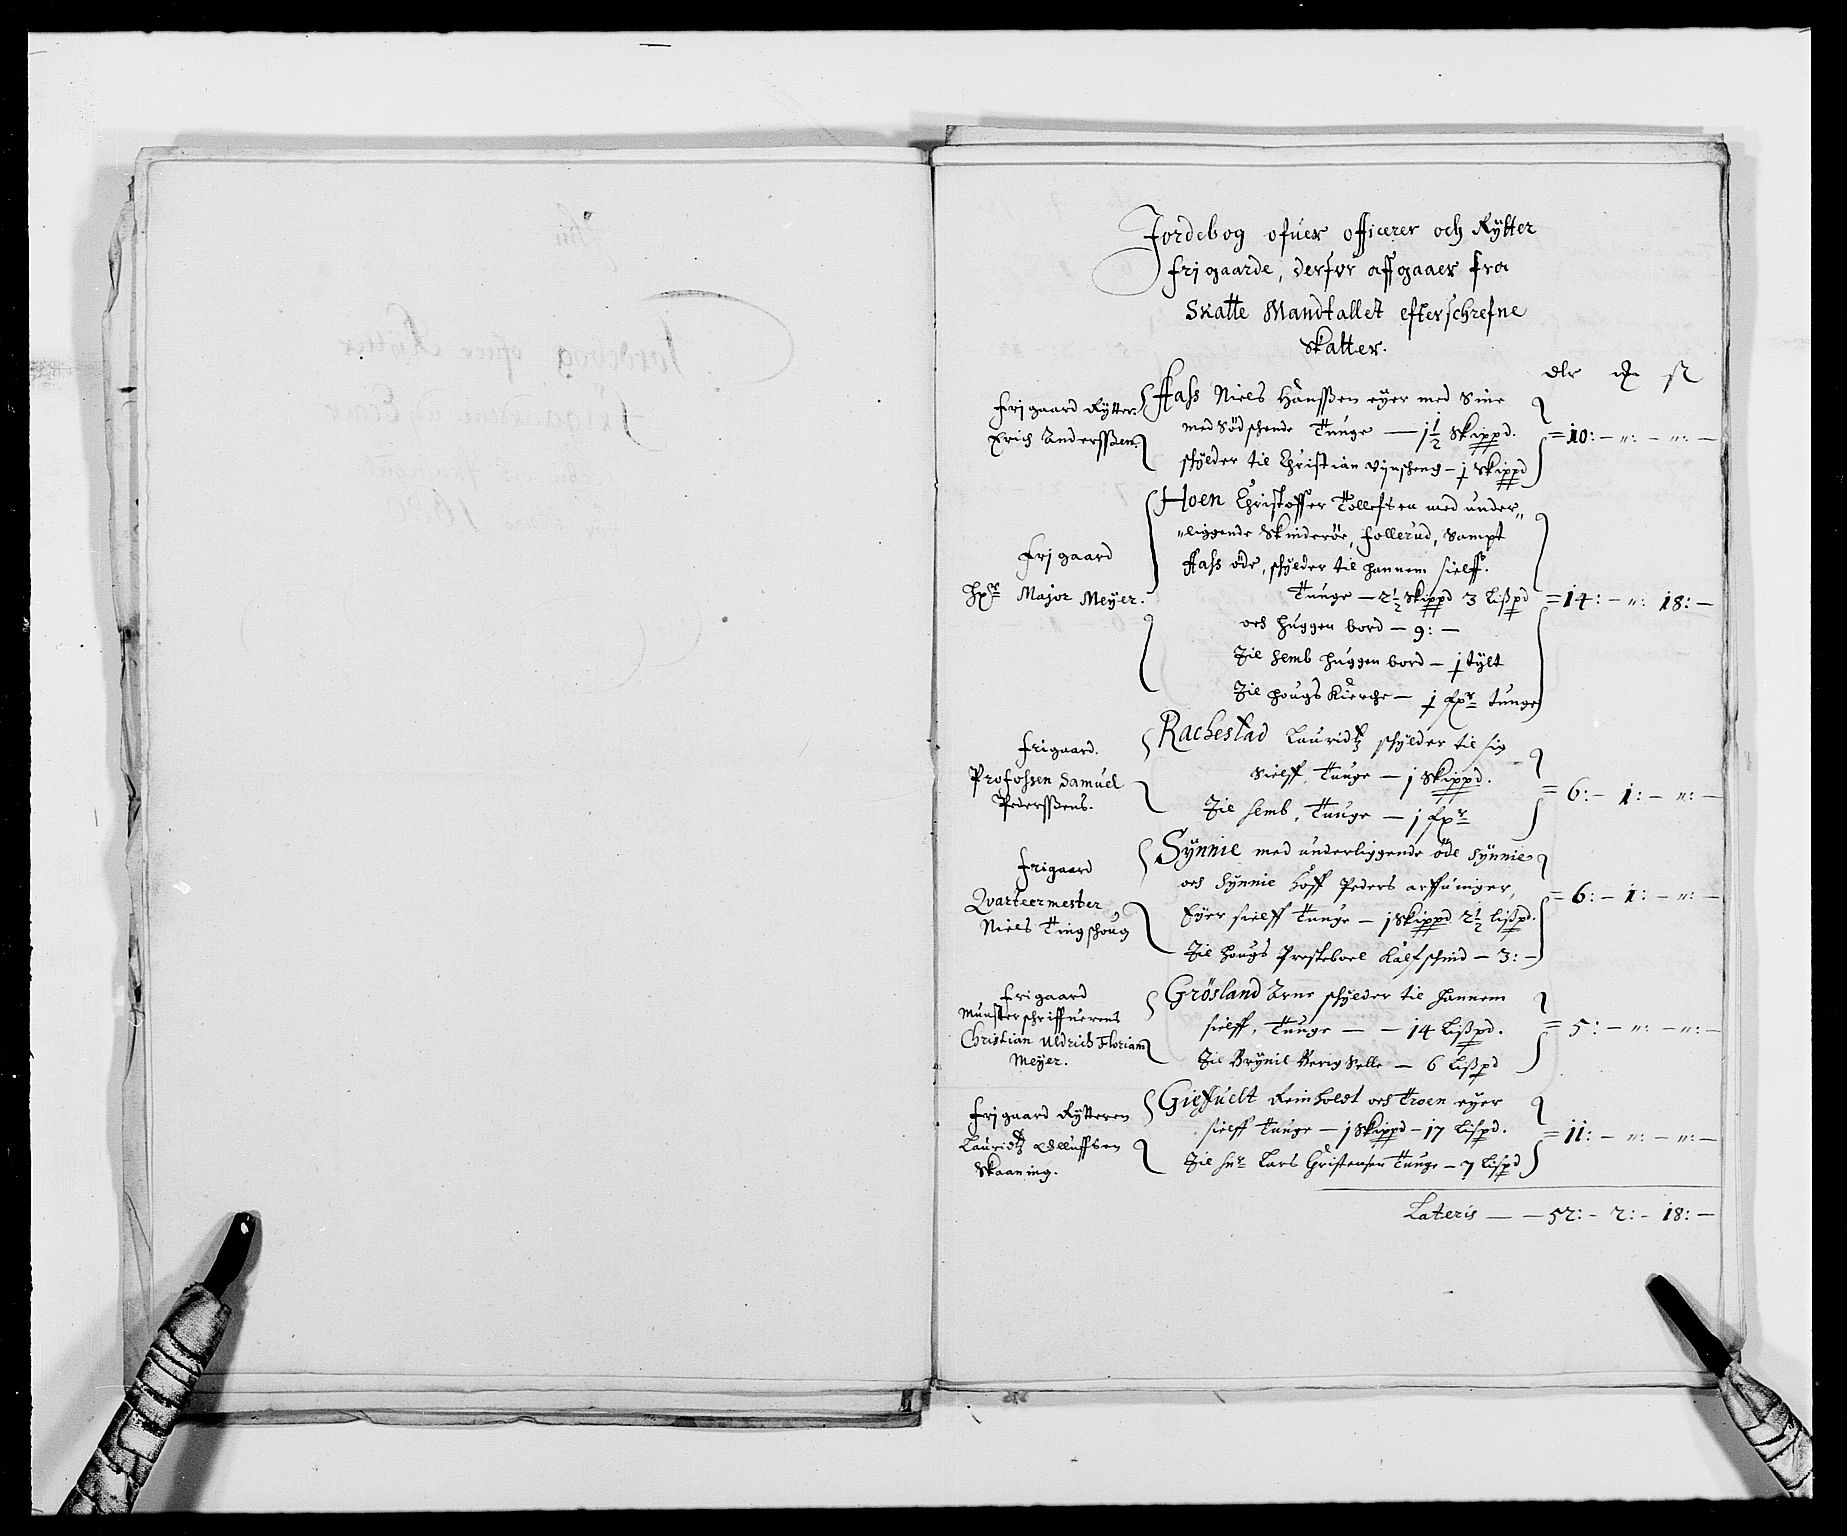 Jordebog ofuer officerer och Rÿtter
frj gaarde, derfor affgaaer fra
Skatte Mandtallet efterschrefne
Skatter.
dlr
Frj gaard Rÿtter
Erich Anderssøn
Hass Niels Hanssøn eÿer med Sine
med Södschende Tunge — 1½ Skippd.
schÿlder til Christian — j Skippd
= 10: — „: — „: —
Frj gaard
Hr Major Meÿer.
Hoen Christoffer Tollefsen med under„
„liggende Skinderöe, follerud, Sampt
Hass öde, schÿlder til hannem sielff.
Tunge — 2½ Skippd 3 Lißpd
och huggen bord — 9: —
Til Semb huggen bord — j tÿlt
Til Hougs Kierche — j tunge
= 14: — „: 18: —
Frigaard.
Profossen Samuel
Pederssøns.
Rachestad Lauridtz schÿlder til sig
Sielff, Tunge — j Skippd.
Til Semb, Tunge — j
= 6: — 1: — „: —
Frigaard
Qvarteermester
Niels Tingschoug
Sÿnnie med underliggende öde Sÿnnie
och Sÿnnie hoff Peders arffuinger,
Eÿer sielff Tunge — j Skippd 2½ Lißpd.
Til Hougs Presteboel Kalfschind — 3: —
= 6: — 1: — „: —
Frigaard
Munsterschriffuerens
Christian Uldrich Floriam
Meÿer.
Grösland Arne schÿlder til hannem
sielff, Tunge — — 14 Lißpd.
Til Brÿnil — 6 Lißpd
= 5: — „: — „: —
Frj gaard Rÿtteren
Lauridtz Olluffsen
Skaaning.
Gieffuelt Reinholdt och Troen eÿer
sielff Tunge — j Skippd — 17 Lispd.
Til Lars Christensen Tunge — 7 Lispd
= 11: — „: — „: —
Lateris — — 52: — 2: — 18: —